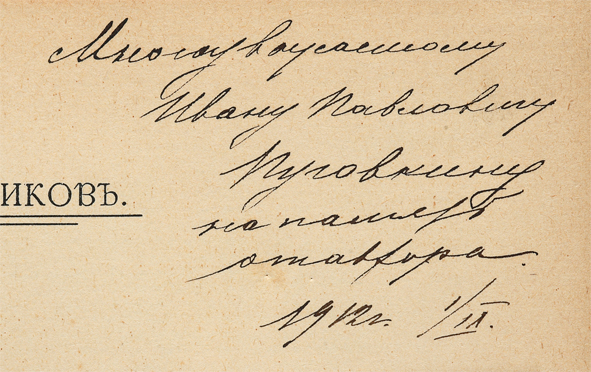 Многоуважаемому
Ивану Павловичу
Пуговкину
на память
ИКОВЪ.
от автора.
1912 г. 1/IX.